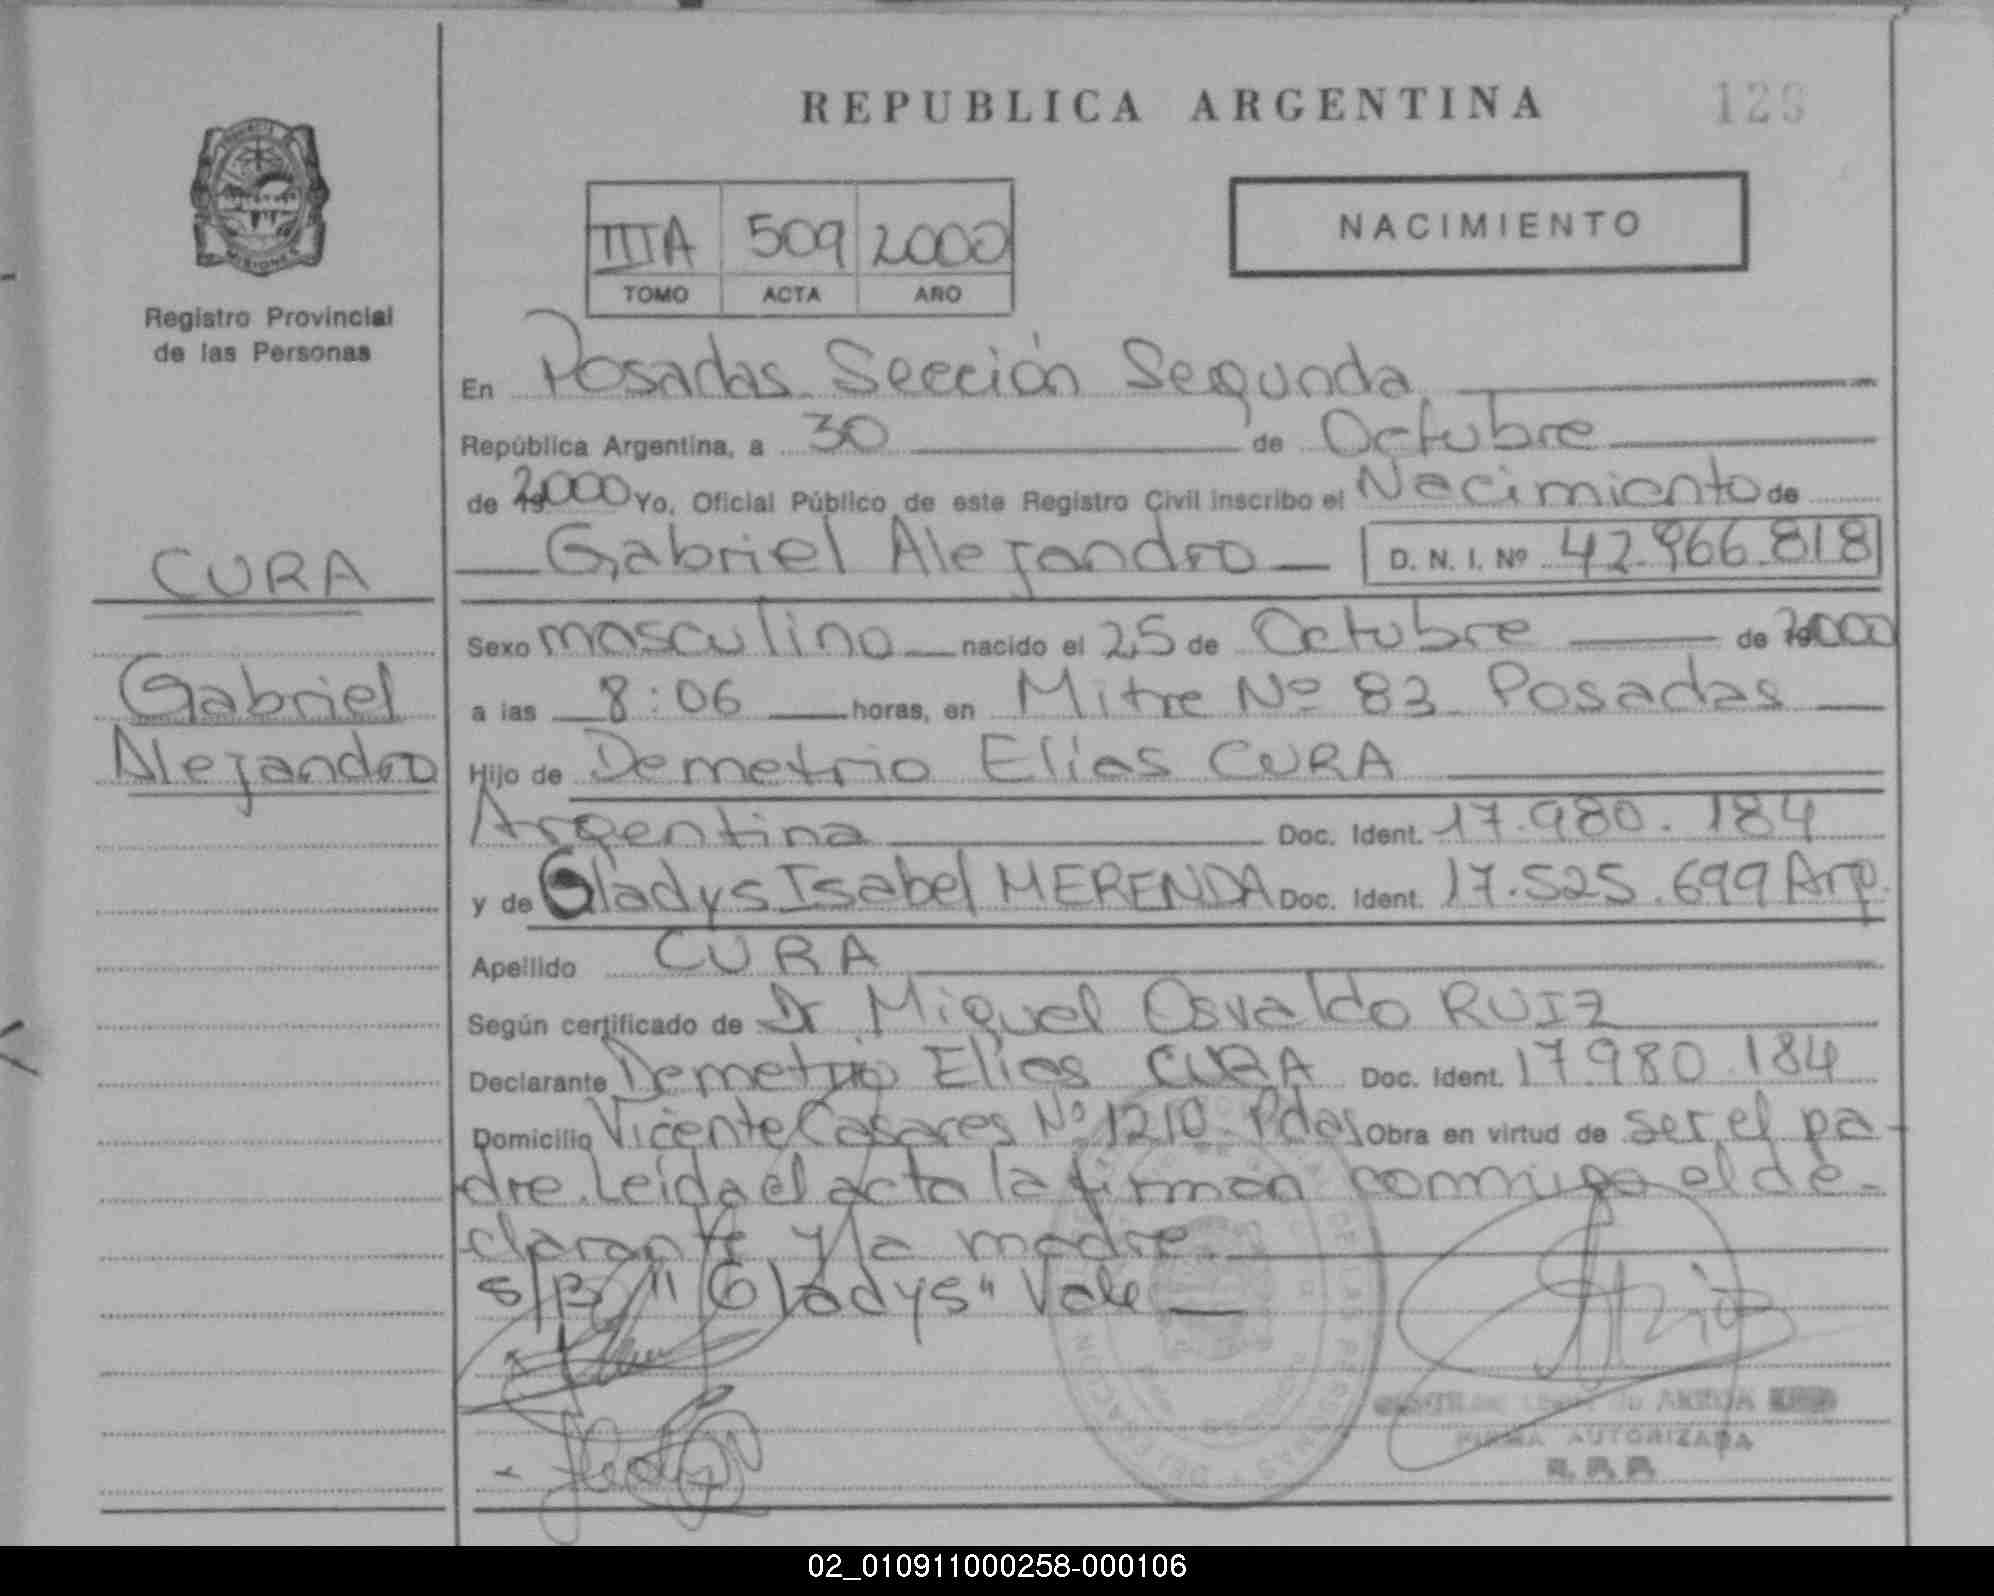 REPUBLICA ARGENTINA
129
MISIONES
Registro Provincial
de las Personas
IIIA 509 2000
TOMO ACTA AÑO
NACIMIENTO
En Posadas Sección Segunda
República Argentina, a 30 de Octubre
de 2000 Yo, Oficial Público de este Registro Civil inscribo el Nacimiento de
Gabriel Alejandro D. N. I. Nº 42.966.818
CURA
Gabriel
Alejandro
Sexo masculino nacido el 25 de Octubre de 2000
a las 8:06 horas, en Mitre Nº 83 Posadas
Hijo de Demetrio Elías CURA
Argentina Doc. Ident. 17.980.184
y de Gladys Isabel MERENDA Doc. Ident. 17.525.699 Arg.
Apellido CURA
Según certificado de Dr Miguel Osvaldo RUIZ
Declarante Demetrio Elías CURA Doc. Ident. 17.980.184
Domicilio Vicente Casares Nº 1210 Pdas Obra en virtud de ser el pa-
dre. Leída el acta la firman conmigo el de-
clarante y la madre.
S/B "Gladys" Vale
FIRMA AUTORIZADA
R. P. P.
02_010911000258-000106